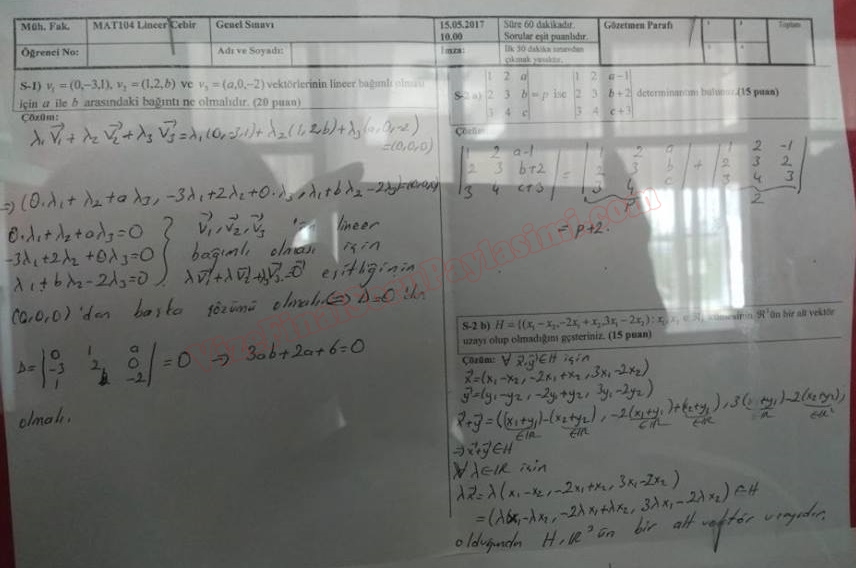 Müh. Fak. MAT104 Lineer Cebir Genel Sınavı 15.05.2017 10.00 Süre 60 dakikadır. Sorular eşit puanlıdır. Gözetmen Parafı 1 2 Toplam
Öğrenci No: Adı ve Soyadı: İmza: İlk 30 dakika sınavdan çıkmak yasaktır. 3 4
S-1) v₁ = (0,-3,1), v₂ = (1,2,b) ve v₃ = (a,0,-2) vektörlerinin lineer bağımlı olması
için a ile b arasındaki bağıntı ne olmalıdır. (20 puan)
Çözüm:
λ₁v₁ + λ₂v₂ + λ₃v₃ = λ₁(0,-3,1) + λ₂(1,2,b) + λ₃(a,0,-2)
= (0,0,0)
⇒ (0.λ₁ + λ₂ + aλ₃, -3λ₁ + 2λ₂ + 0.λ₃, λ₁ + bλ₂ - 2λ₃) = (0,0,0)
0.λ₁ + λ₂ + aλ₃ = 0 } v₁, v₂, v₃ 'ün lineer
-3λ₁ + 2λ₂ + 0λ₃ = 0 } bağımlı olması için
λ₁ + bλ₂ - 2λ₃ = 0 } λv₁ + λv₂ + λv₃ = 0 eşitliğinin
(0,0,0)'dan başka çözümü olmalı (⇒) Δ=0 'dır
Δ = |0 1 a|
|-3 2 0| = 0 ⇒ 3ab + 2a + 6 = 0
|1 b -2|
olmalı.
S-2 a) |1 2 a| |1 2 a-1|
|2 3 b| = p ise |2 3 b+2| determinantını bulunuz. (15 puan)
|3 4 c| |3 4 c+3|
Çözüm:
|1 2 a-1| |1 2 a| |1 2 -1|
|2 3 b+2| = |2 3 b| + |2 3 2|
|3 4 c+3| |3 4 c| |3 4 3|
p 2
= p+2.
S-2 b) H = {(x₁ - x₂, -2x₁ + x₂, 3x₁ - 2x₂) : x₁, x₂ ∈ ℜ} kümesinin ℜ³ün bir alt vektör
uzayı olup olmadığını gösteriniz. (15 puan)
Çözüm: ∀ x,y ∈ H için
x = (x₁-x₂, -2x₁+x₂, 3x₁-2x₂)
y = (y₁-y₂, -2y₁+y₂, 3y₁-2y₂)
x+y = ((x₁+y₁)-(x₂+y₂), -2(x₁+y₁)+(x₂+y₂), 3(x₁+y₁)-2(x₂+y₂))
∈IR ∈IR ∈IR ∈IR ∈IR ∈IR
⇒ x+y ∈ H
∀ λ∈IR için
λx = λ(x₁-x₂, -2x₁+x₂, 3x₁-2x₂)
= (λx₁-λx₂, -2λx₁+λx₂, 3λx₁-2λx₂) ∈ H
olduğundan H, IR³ ün bir alt vektör uzayıdır.